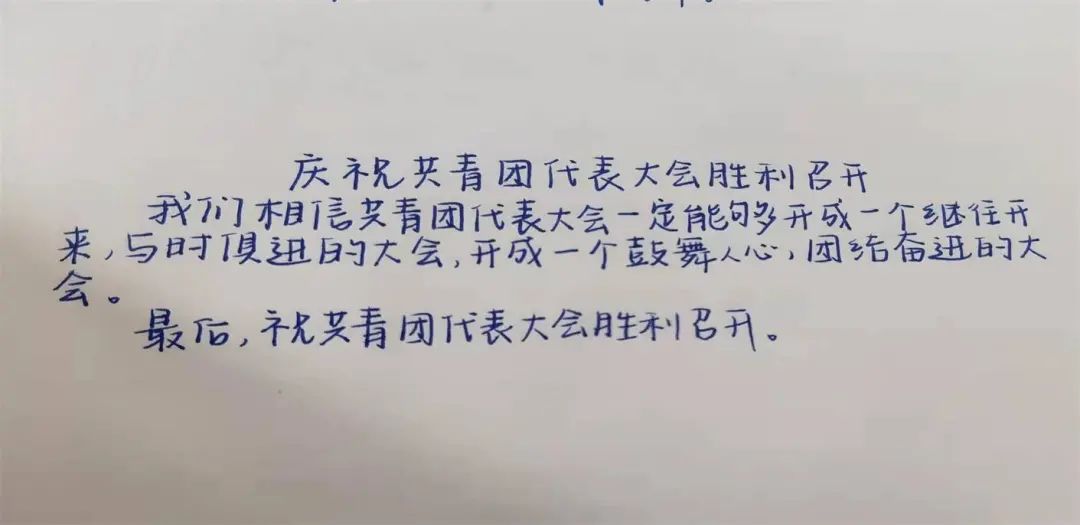 庆祝共青团代表大会胜利召开
我们相信共青团代表大会一定能够开成一个继往开
来,与时俱进的大会,开成一个鼓舞人心,团结奋进的大
会。
最后,祝共青团代表大会胜利召开。